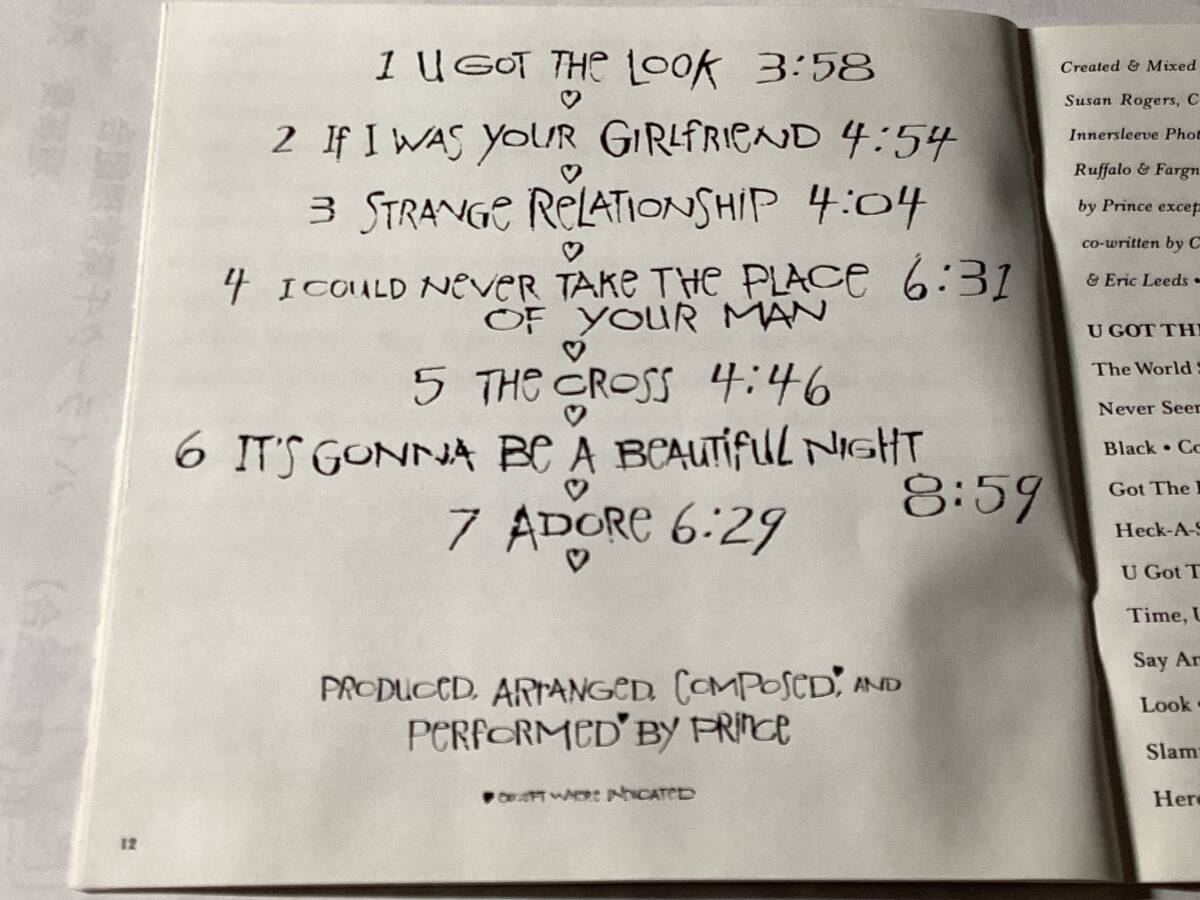 1 U GOT THE LOOK 3:58
♡
2 If I WAS YOUR GIRLfRIEND 4:54
♡
3 STRANGE RELATIONSHIP 4:04
♡
4 I COULD NEVER TAKE THE PLACE 6:31
OF YOUR MAN
♡
5 THE CROSS 4:46
♡
6 IT'S GONNA BE A BEAUTIFUL NIGHT
8:59
♡
7 ADORE 6:29
♡
PRODUCED, ARRANGED, COMPOSED♥, AND
PERFORMED♥ BY PRINCE
♥ EXCEPT WHERE INDICATED
12
Created & Mixed
Susan Rogers, C
Innersleeve Phot
Ruffalo & Fargn
by Prince excep
co-written by C
& Eric Leeds •
U GOT THE
The World S
Never Seen
Black • Co
Got The L
Heck-A-S
U Got T
Time, U
Say Ar
Look •
Slam
Here